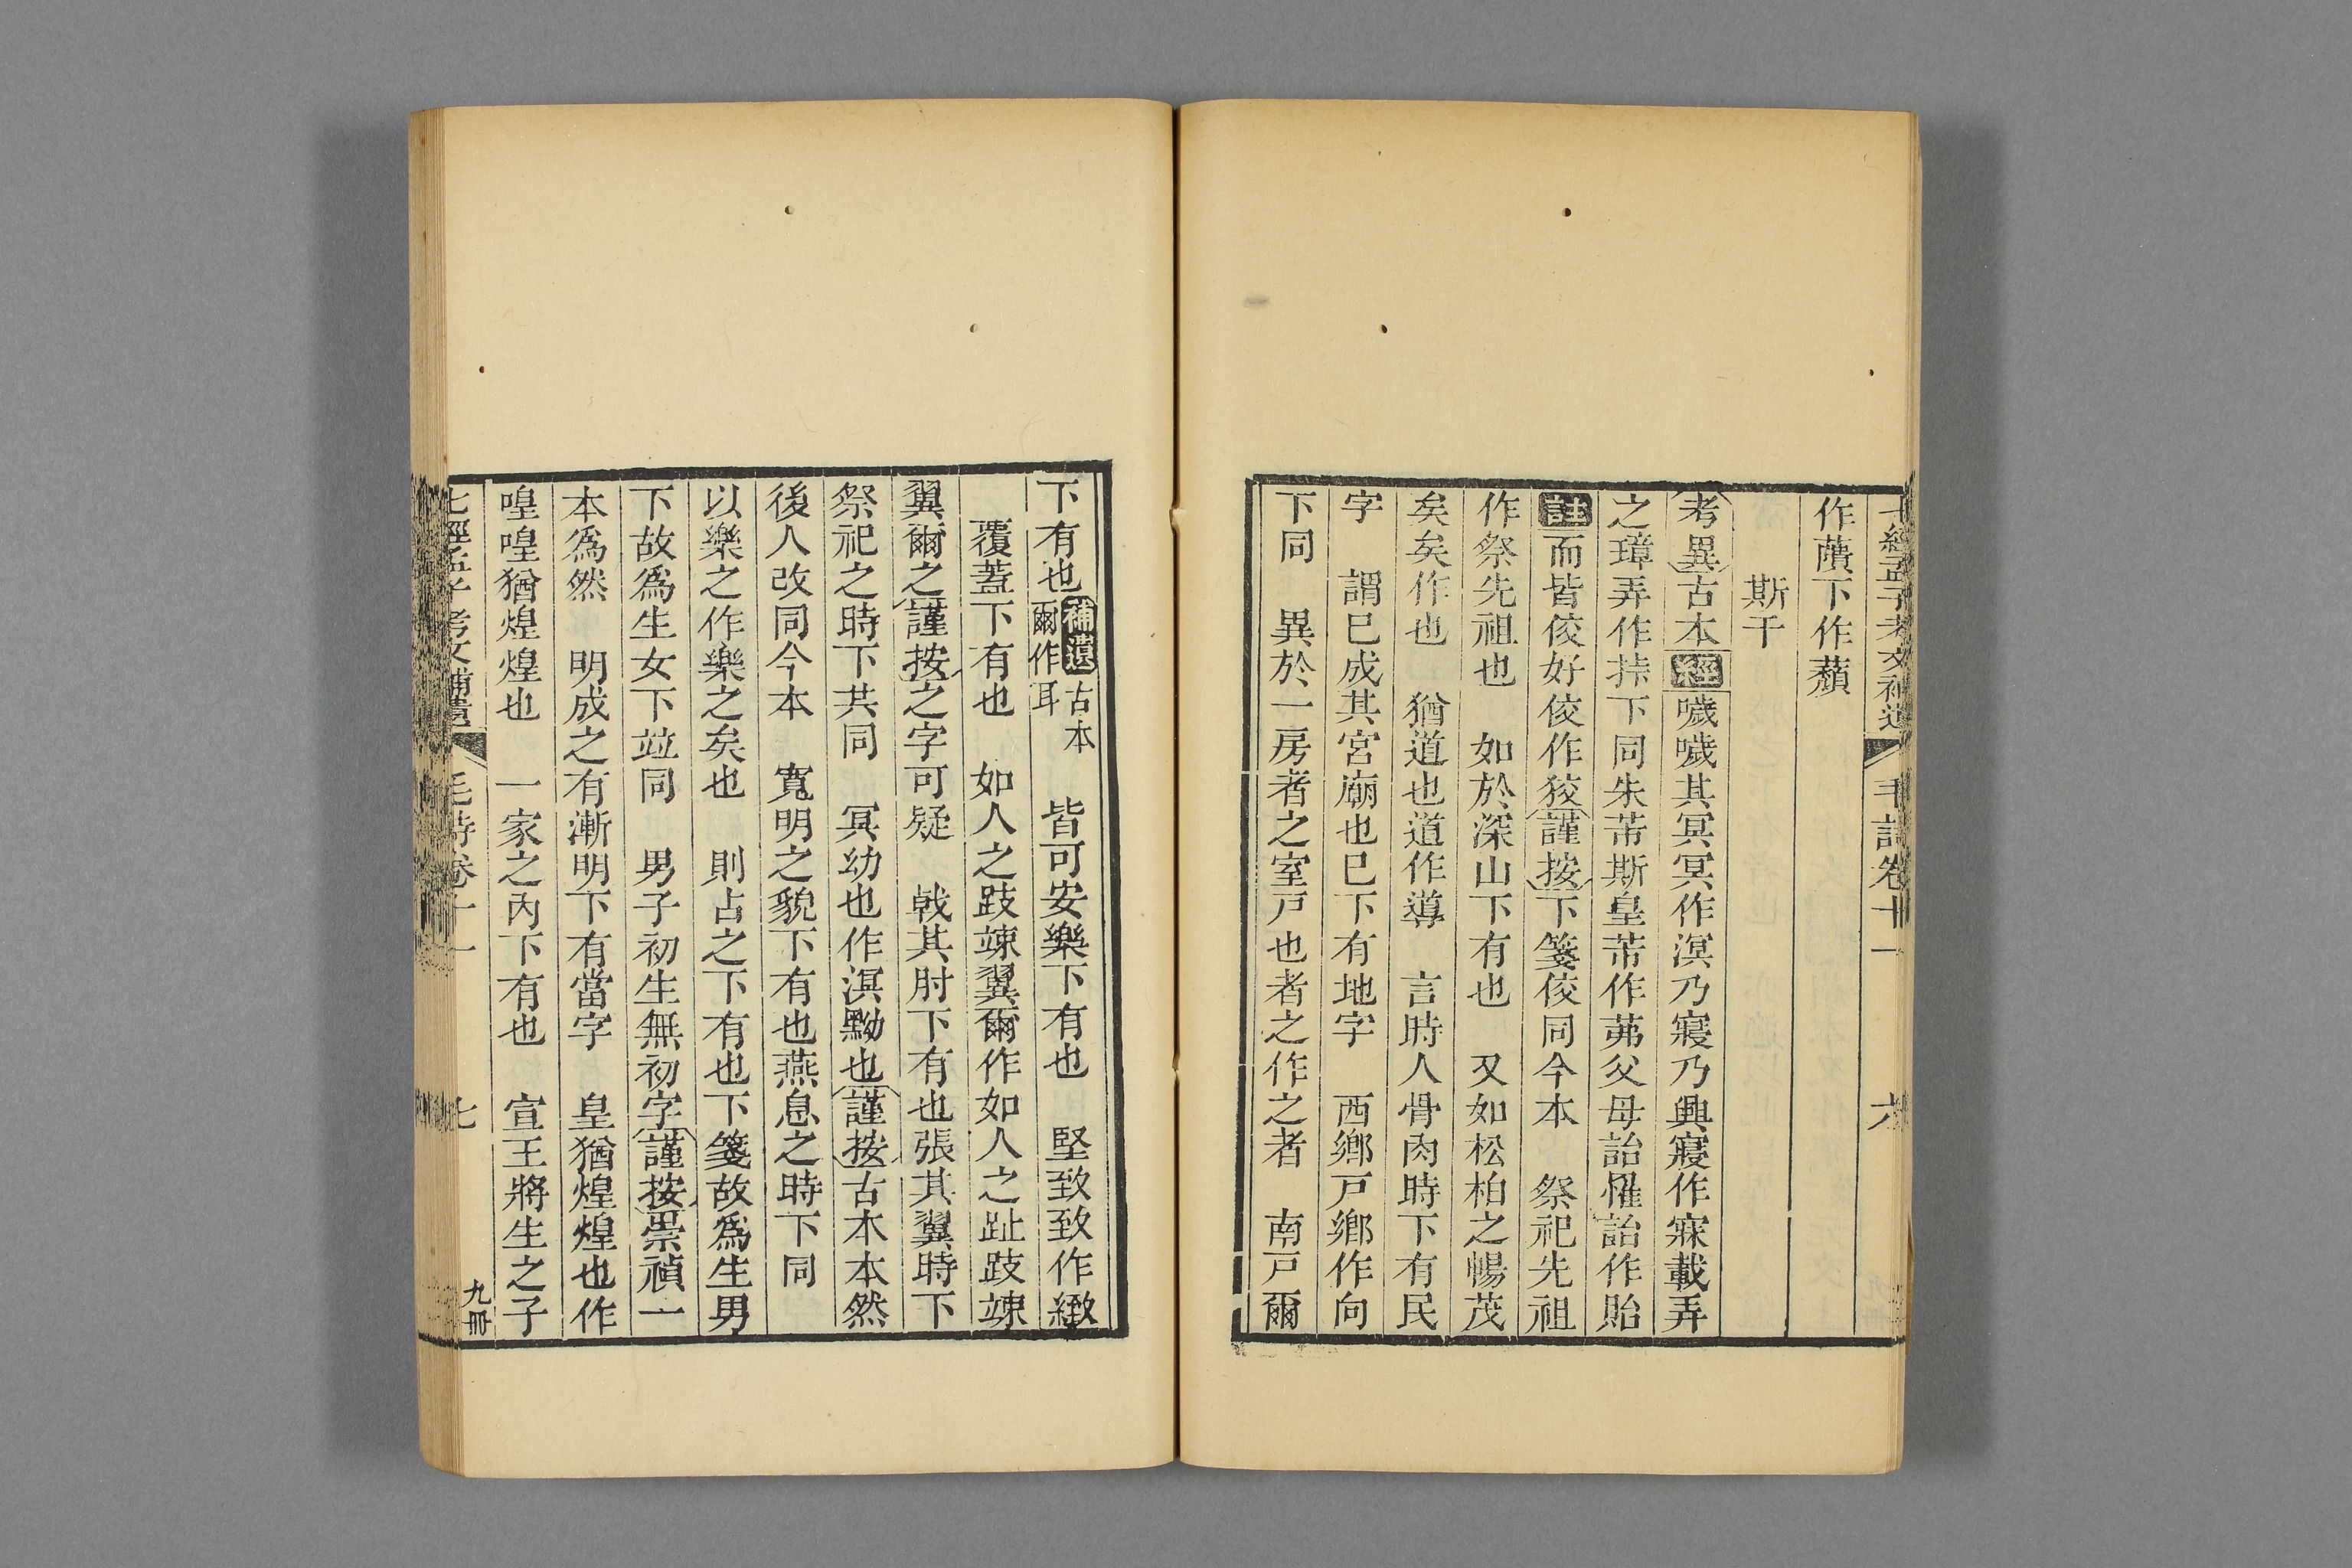 七經孟子考文補遺 毛詩卷十一 六
作蕡下作蘈
斯干
考異古本經噦噦其冥冥作溟乃寢乃興寢作寐載弄
之璋弄作挊下同朱芾斯皇芾作茀父母詒罹詒作貽
註而皆佼好佼作狡謹按下箋佼同今本 祭祀先祖
作祭先祖也 如於深山下有也 又如松柏之暢茂
矣矣作也 猶道也道作導 言時人骨肉時下有民
字 謂已成其宮廟也已下有地字 西鄉戶鄉作向
下同 異於一房者之室戸也者之作之者 南戸爾
下有也補遺古本爾作耳 皆可安樂下有也 堅致致作緻
覆蓋下有也 如人之跂竦翼爾作如人之趾跂竦
翼爾之謹按之字可疑 戟其肘下有也張其翼時下
祭祀之時下共同 冥幼也作溟黝也謹按古木本然
後人改同今本 寬明之貌下有也燕息之時下同
以樂之作樂之矣也 則占之下有也下箋故爲生男
下故爲生女下竝同 男子初生無初字謹按崇禎一
本爲然 明成之有漸明下有當字 皇猶煌煌也作
喤喤猶煌煌也 一家之內下有也 宣王將生之子
七經孟子考文補遺 毛詩卷十一 七 九冊